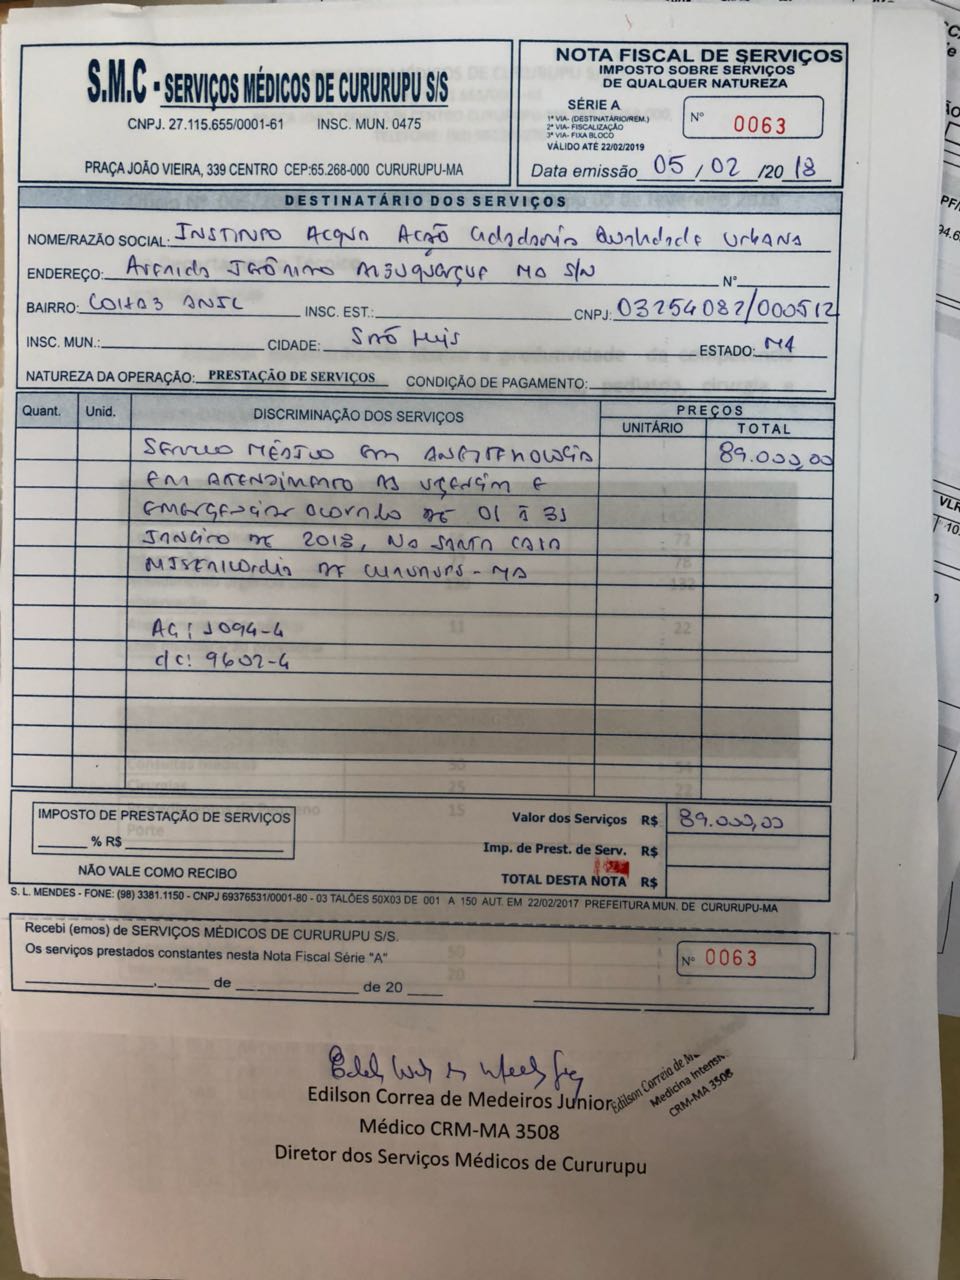 S.M.C - SERVIÇOS MÉDICOS DE CURURUPU S/S
CNPJ. 27.115.655/0001-61 INSC. MUN. 0475
PRAÇA JOÃO VIEIRA, 339 CENTRO CEP:65.268-000 CURURUPU-MA
NOTA FISCAL DE SERVIÇOS
IMPOSTO SOBRE SERVIÇOS
DE QUALQUER NATUREZA
SÉRIE A
1ª VIA- (DESTINATÁRIO/REM.)
2ª VIA- FISCALIZAÇÃO
3ª VIA- FIXA BLOCO
VÁLIDO ATÉ 22/02/2019
Nº 0063
Data emissão 05 / 02 /20 18
DESTINATÁRIO DOS SERVIÇOS
NOME/RAZÃO SOCIAL: INSTITUTO ACQUA AÇÃO Cidadania Qualidade URBANA
ENDEREÇO: Avenida JERÔNIMO ALBUQUERQUE MA S/N Nº
BAIRRO: COHAB ANIL INSC. EST.: CNPJ: 03254082/000512
INSC. MUN.: CIDADE: SÃO LUIS ESTADO: MA
NATUREZA DA OPERAÇÃO: PRESTAÇÃO DE SERVIÇOS CONDIÇÃO DE PAGAMENTO:
Quant. Unid. DISCRIMINAÇÃO DOS SERVIÇOS PREÇOS
UNITÁRIO TOTAL
SERVIÇO MÉDICO EM ANESTESIOLOGIA 89.000,00
EM ATENDIMENTO AS URGÊNCIA E
EMERGÊNCIAS OCORRIDO DE 01 À 31
JANEIRO DE 2018, NO SANTA CASA
MISERICORDIA DE CURURUPU - MA
AG: 1094-4
c/c: 9602-4
IMPOSTO DE PRESTAÇÃO DE SERVIÇOS
% R$
NÃO VALE COMO RECIBO
Valor dos Serviços R$ 89.000,00
Imp. de Prest. de Serv. R$
TOTAL DESTA NOTA R$
S. L. MENDES - FONE: (98) 3381.1150 - CNPJ 69376531/0001-80 - 03 TALÕES 50X03 DE 001 A 150 AUT. EM 22/02/2017 PREFEITURA MUN. DE CURURUPU-MA
Recebi (emos) de SERVIÇOS MÉDICOS DE CURURUPU S/S.
Os serviços prestados constantes nesta Nota Fiscal Série "A"
Nº 0063
de de 20
Edilson Correa de Medeiros Junior
Médico CRM-MA 3508
Diretor dos Serviços Médicos de Cururupu
Edilson Correia de
Medicina Intensiv
CRM-MA 3508